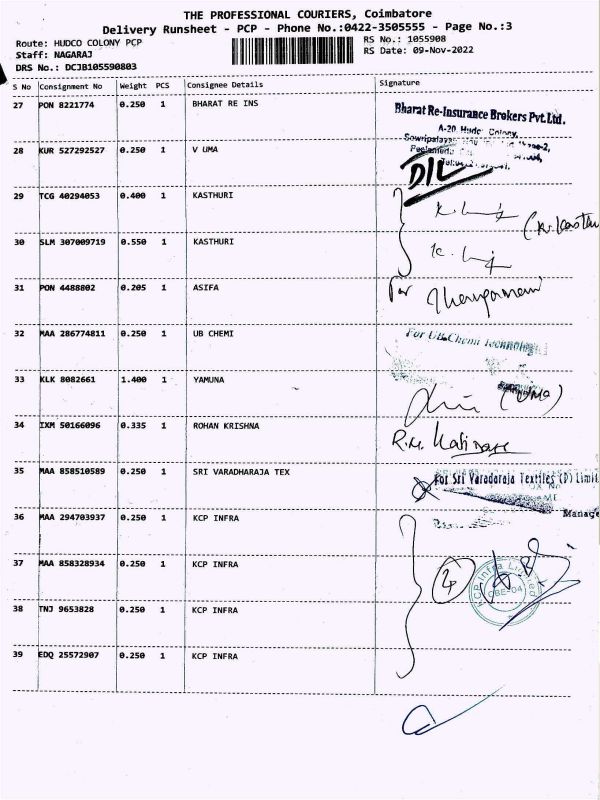 THE PROFESSIONAL COURIERS, Coimbatore
Delivery Runsheet - PCP - Phone No.:0422-3505555 - Page No.:3
Route: HUDCO COLONY PCP
Staff: NAGARAJ
DRS No.: DCJB105590803
RS No.: 1055908
RS Date: 09-Nov-2022
S No Consignment No Weight PCS Consignee Details Signature
27 PON 8221774 0.250 1 BHARAT RE INS
Bharat Re-Insurance Brokers Pvt.Ltd.
A-20, Hudco Colony,
28 KUR 527292527 0.250 1 V UMA
29 TCG 40294053 0.400 1 KASTHURI
30 SLM 307009719 0.550 1 KASTHURI
31 PON 4488802 0.205 1 ASIFA
For
32 MAA 286774811 0.250 1 UB CHEMI
For UB.Chemi Technologi
33 KLK 8082661 1.400 1 YAMUNA
34 IXM 50166096 0.335 1 ROHAN KRISHNA
35 MAA 858510589 0.250 1 SRI VARADHARAJA TEX
For Sri Varadaraja Textiles (P) Limit
Manage
36 MAA 294703937 0.250 1 KCP INFRA
37 MAA 858328934 0.250 1 KCP INFRA
KCP Infra Limited
CBE-04
38 TNJ 9653828 0.250 1 KCP INFRA
39 EDQ 25572907 0.250 1 KCP INFRA